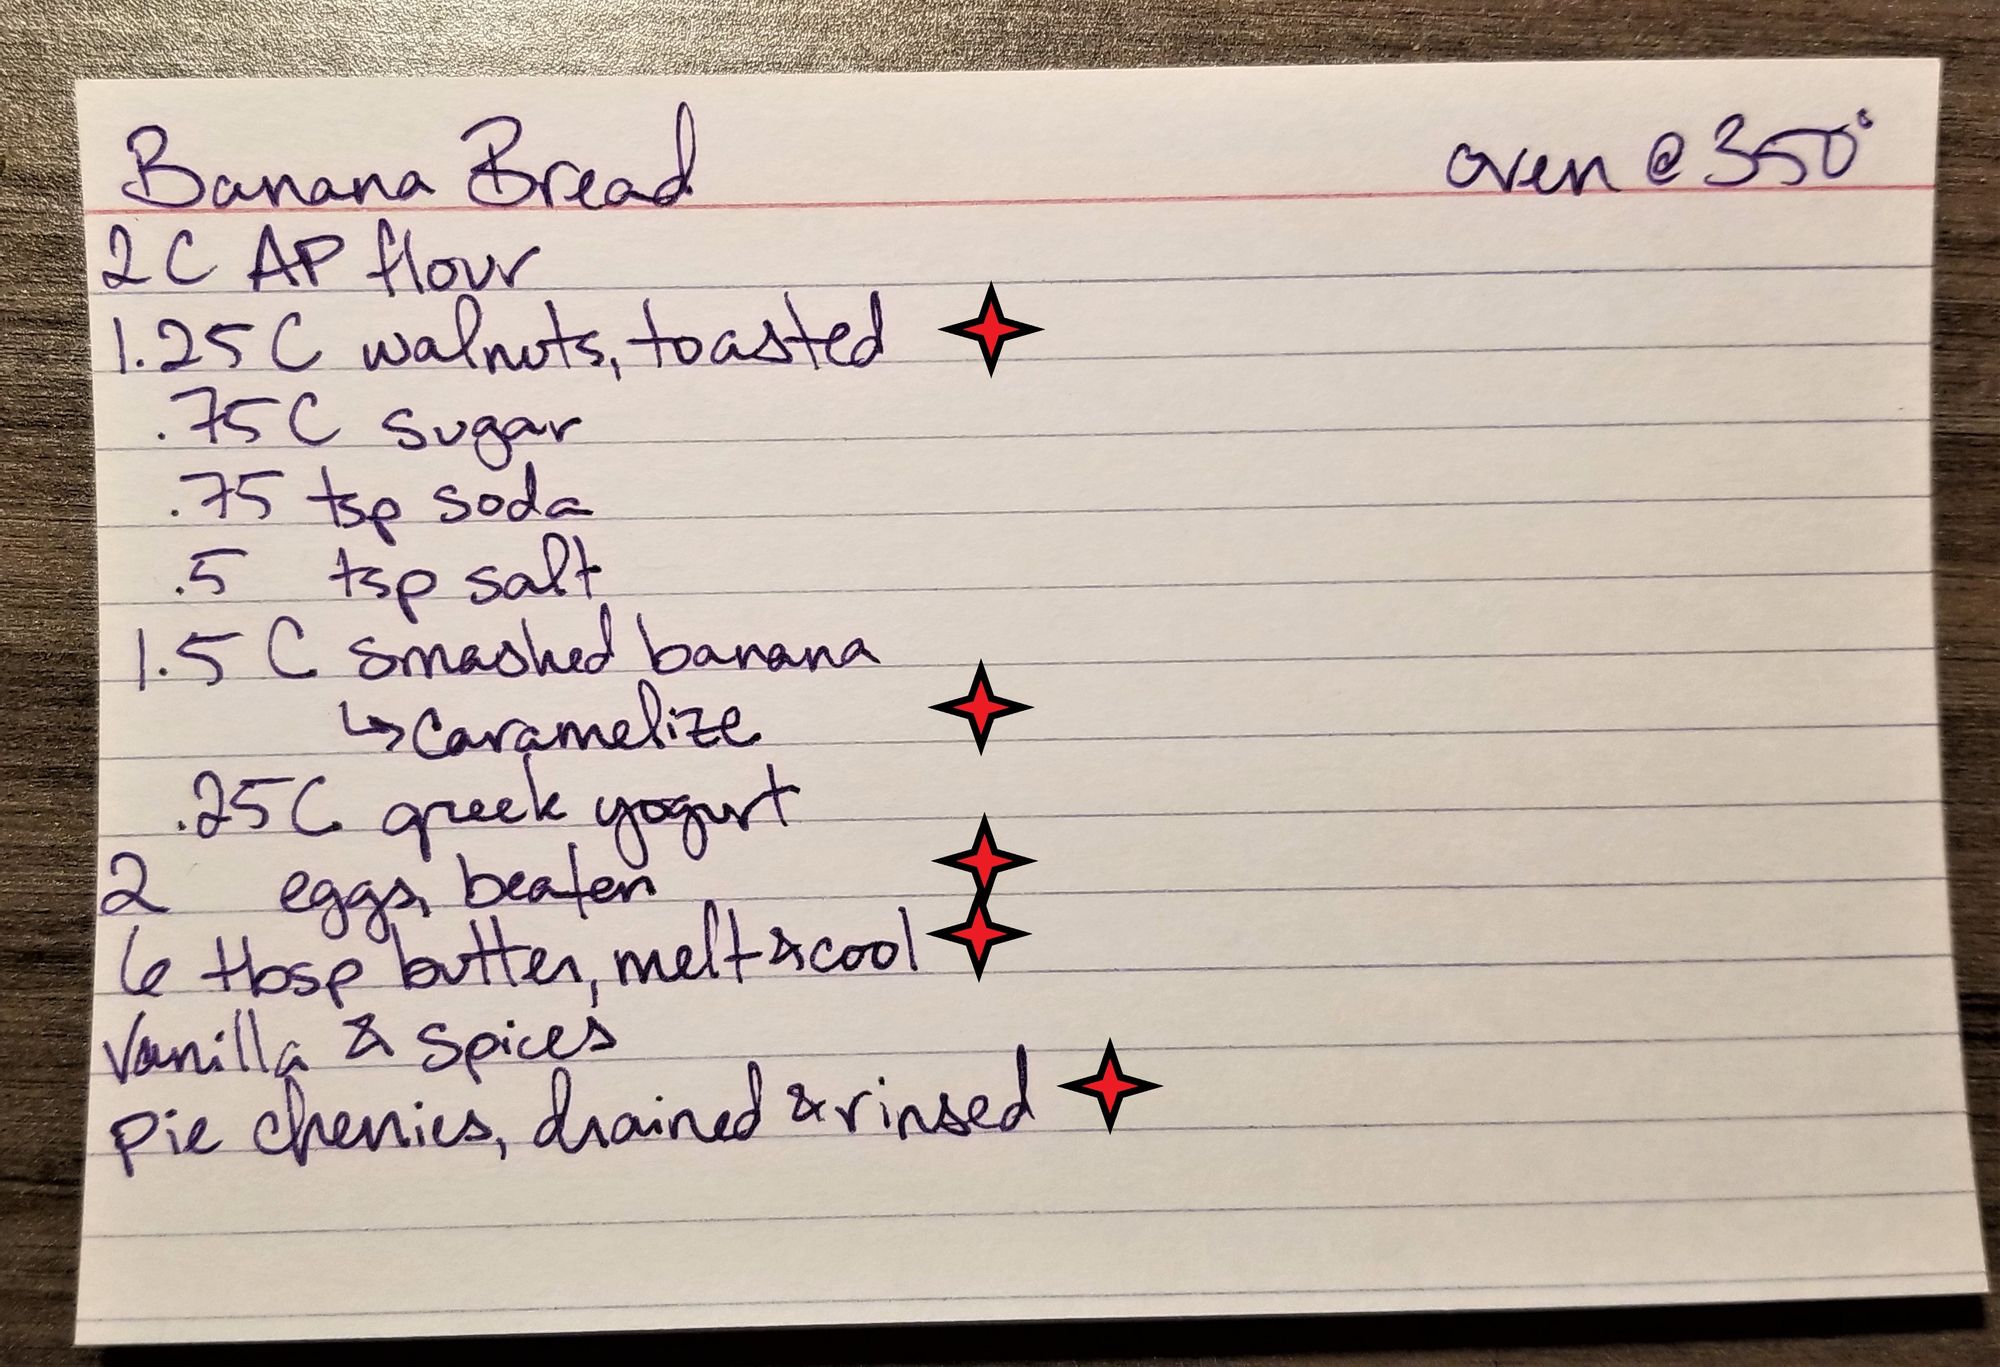 Banana Bread oven @ 350°
2 C AP flour
1.25 C walnuts, toasted
.75 C sugar
.75 tsp soda
.5 tsp salt
1.5 C smashed banana
↳ caramelize
.25 C greek yogurt
2 eggs, beaten
6 tbsp butter, melt & cool
Vanilla & spices
pie cherries, drained & rinsed